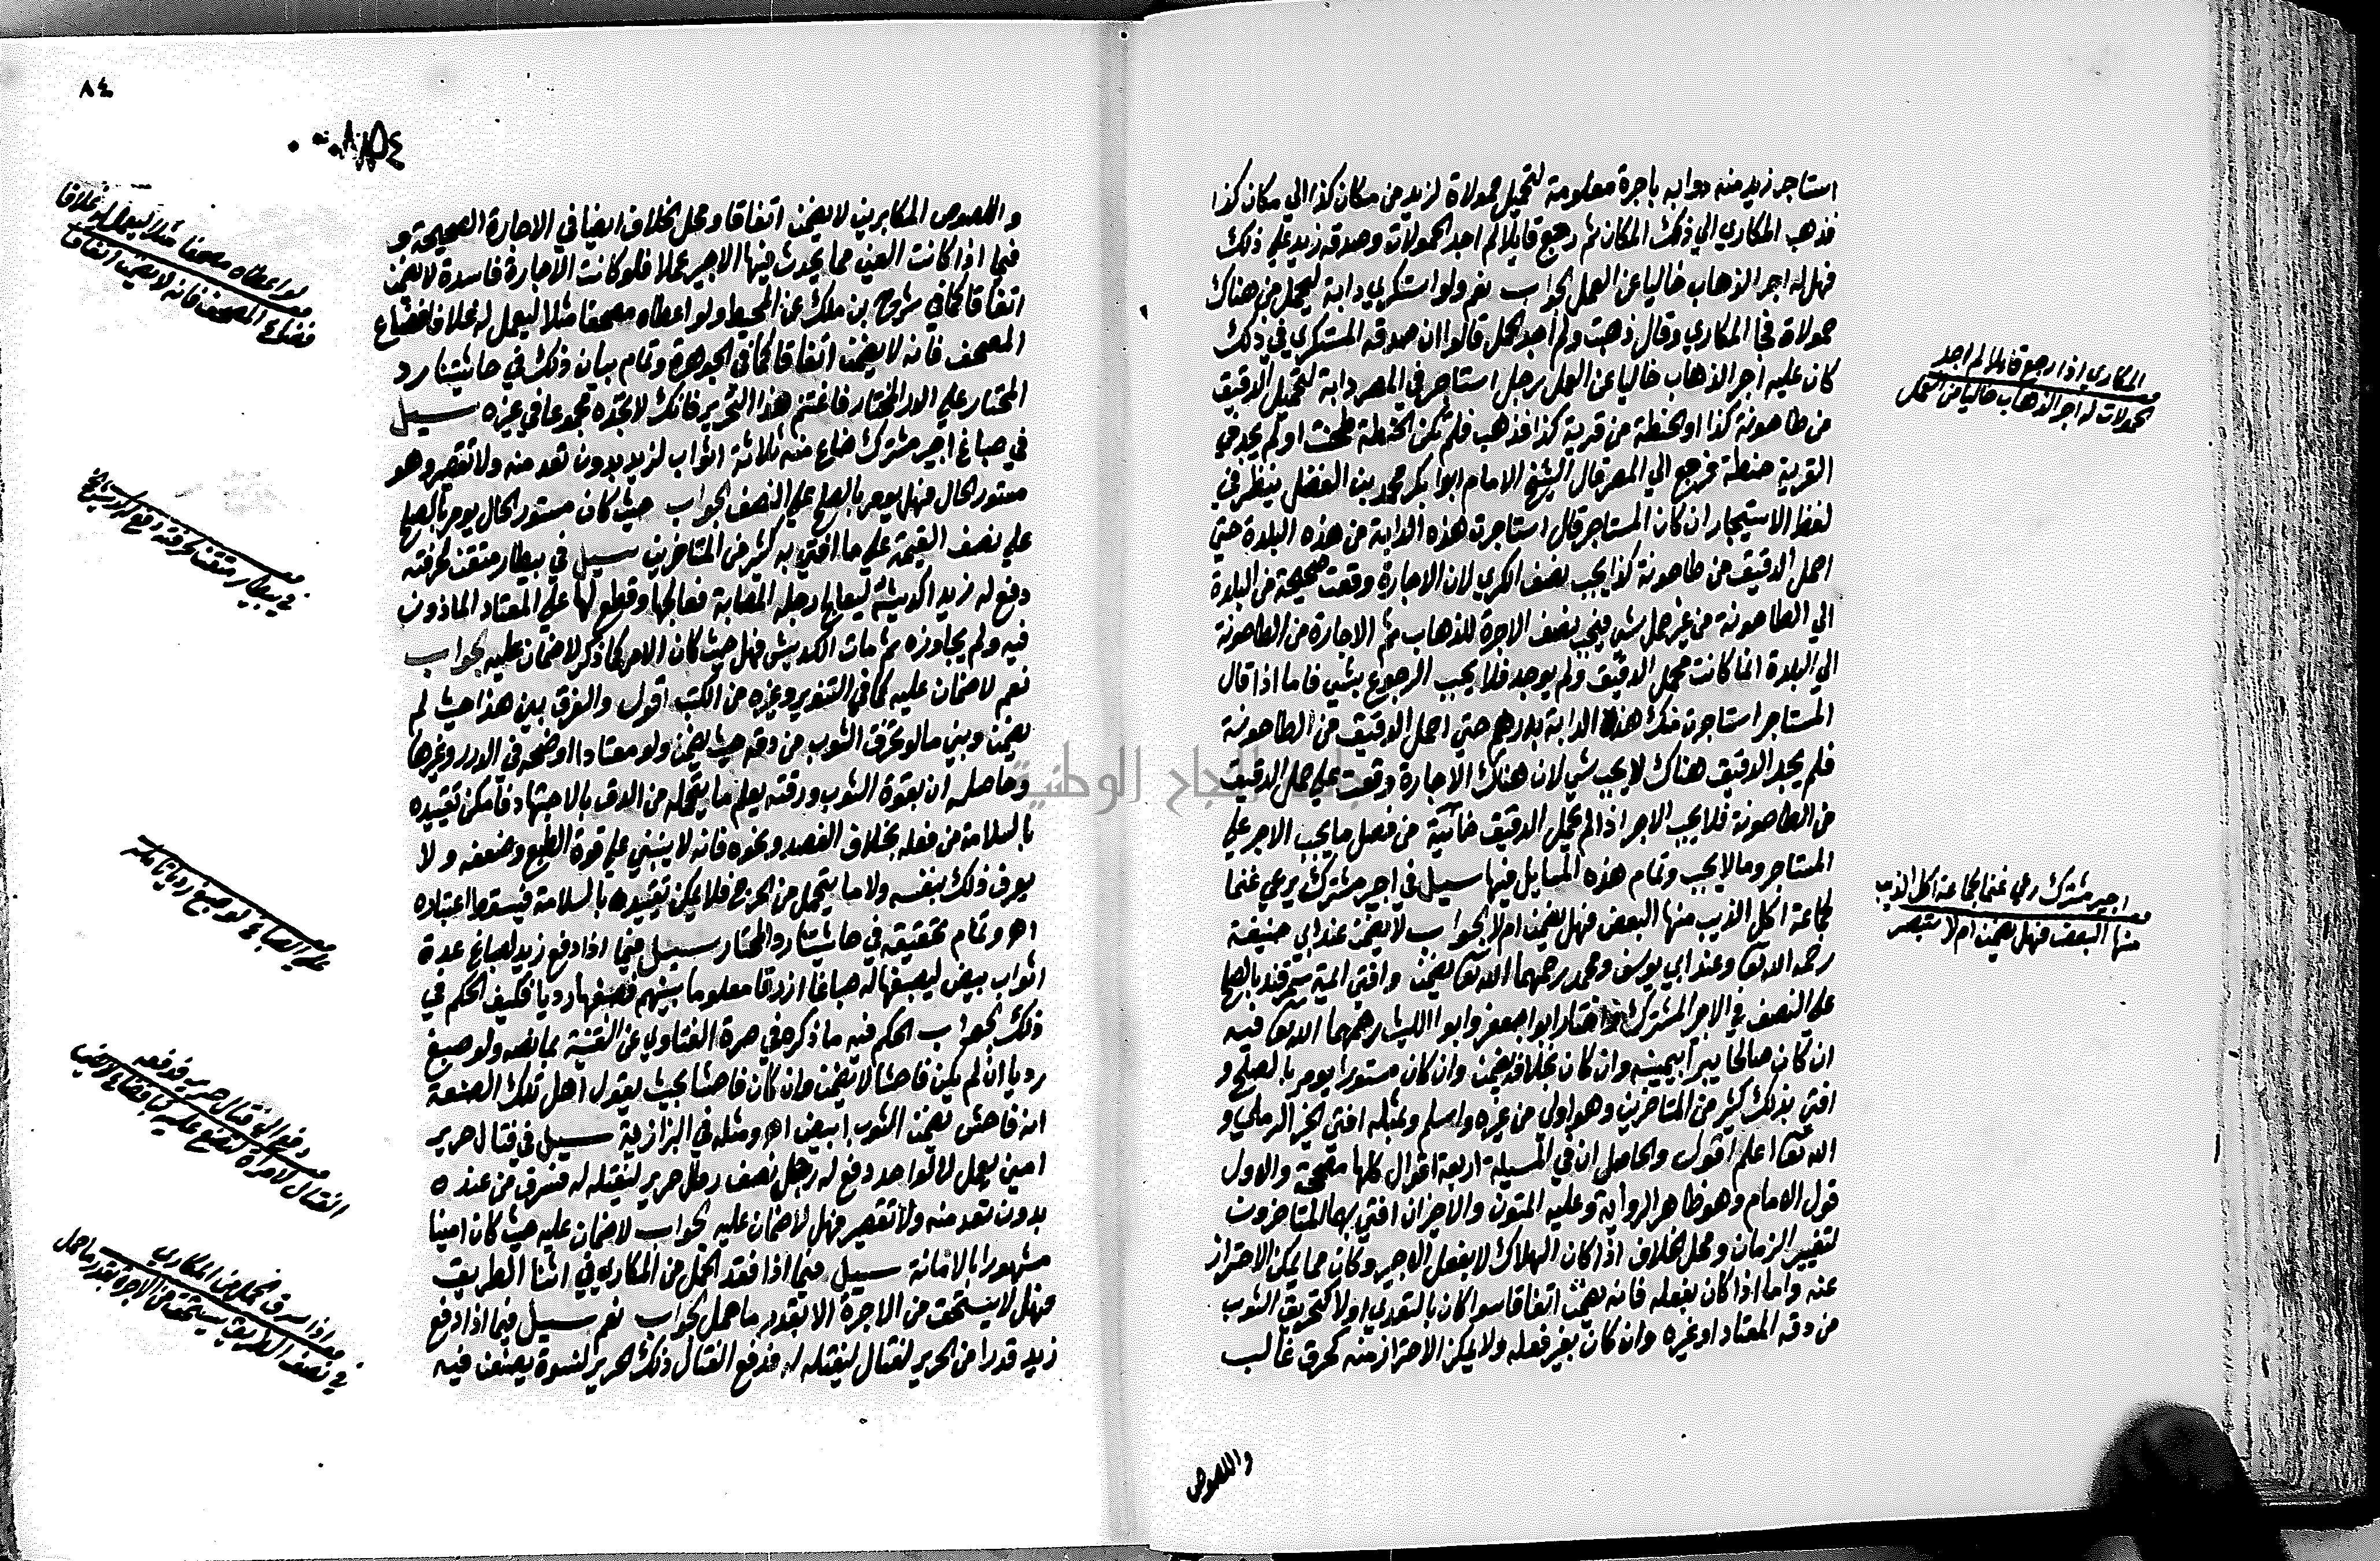 استاجر زيد منه دوابه باجرة معلومة لتحميل حمولاة لزيد من مكان كذا الي مكان كذا
فذهب المكاري الي ذلك المكان ثم رجع قايلا لم اجد الحمولات وصدقه زيد علي ذلك
فهل له اجر الذهاب خاليا عن العمل الجواب نعم ولو استكري دابة ليحمل من هناك
حمولاة فجا المكاري وقال ذهبت ولم اجد الحمل قالوا ان صدقه المستكري في ذلك
كان عليه اجر الذهاب خاليا عن العمل رجل استاجر في المصر دابة لتحميل الدقيق
من طاحونة كذا او الحنطة من قرية كذا فذهب فلم تكن الحنطة طحنت او لم يجد في
القرية حنطة فرجع الي المصر قال الشيخ الامام ابو بكر محمد بن الفضل ينظر في
لفظ الاستيجار ان كان المستاجر قال استاجرت هذه الدابة من هذه البلدة حتي
احمل الدقيق من طاحونة كذا يجب نصف الكري لان الاجارة وقعت صحيحة من البلدة
الي الطاحونة من غير حمل شي فيجب نصف الاجرة للذهاب ثم الاجارة من الطاحونة
الي البلدة انما كانت لحمل الدقيق ولم يوجد فلا يجب الرجوع بشي فاما اذا قال
المستاجر استاجرت منك هذه الدابة بدرهم حتي احمل الدقيق من الطاحونة
فلم يجد الدقيق هناك لا يجب شي لان هناك الاجارة وقعت علي حمل الدقيق
من الطاحونة فلا يجب الاجر اذا لم يحمل الدقيق خانية من فصل ما يجب الاجر علي
المستاجر وما لا يجب وتمام هذه المسايل فيها سيل في اجير مشترك يرعي غنما
لجماعة اكل الذيب منها البعض فهل يضمن ام لا الجواب لا يضمن عند ابي حنيفة
رحمه الله تعا وعند ابي يوسف ومحمد رحمهما الله تعا يضمن وافتي ايمة سمرقند بالصلح
علي النصف في الاجير المشترك واختار ابو جعفر وابو الليث رحمهما الله تعا فيه
ان كان صالحا يبرا بيمينه وان كان بخلافه يضمن وان كان مستورا يومر بالصلح و
افتي بذلك كثير من المتاخرين وهو اولي من غيره واسلم وبمثله افتي الخير الرملي و
الله تعا اعلم اقول والحاصل ان في المسيلة اربعة اقوال كلها مصححة والاول
قول الامام وهو ظاهر الرواية وعليه المتون والاخيران افتي بهما المتاخرون
لتغيير الزمان ومحل الخلاف اذا كان الهلاك لا بفعل الاجير وكان مما يمكن الاحتراز
عنه واما اذا كان بفعله فانه يضمن اتفاقا سوا كان بالتعدي او لا كتخريق الثوب
من دقه المعتاد او غيره وان كان بغير فعله ولا يمكن الاحتراز منه كحرق غالب
واللصوص
المكاري اذا رجع قايلا لم اجد
الحمولات له اجر الذهاب خاليا عن العمل
اجير مشترك رعي غنما لجماعة اكل الذيب
منها البعض فهل يضمن ام لا
جامعة النجاح الوطنية
٨٤
واللصوص المكابرين لا يضمن اتفاقا ومحل الخلاف ايضا في الاجارة الصحيحة و
فيما اذا كانت العين مما يحدث فيها الاجير عملا فلو كانت الاجارة فاسدة لا يضمن
اتفاقا كما في شرح بن ملك عن المحيط ولو اعطاه مصحفا مثلا ليعمل له غلافا فضاع
المصحف فانه لا يضمن اتفاقا كما في الجوهرة وتمام بيان ذلك في حاشيتنا رد
المحتار علي الدر المختار فاغتنم هذا التحرير فانك لا تجده مجموعا في غيره سيل
في صباغ اجير مشترك ضاع منه ثلاثة اثواب لزيد بدون تعد منه ولا تقصير وهو
مستور الحال فهل يومر بالصلح علي النصف الجواب حيث كان مستور الحال يومر بالصلح
علي نصف القيمة علي ما افتي به كثير من المتاخرين سيل في بيطار متقن لحرفته
دفع له زيد اكديشة ليعالج رجله المصابة فعالجها وقطع لها علي المعتاد الماذون
فيه ولم يجاوزه ثم مات الكديش فهل حيث كان الامر كما ذكر لا ضمان عليه الجواب
نعم لا ضمان عليه كما في التنوير وغيره من الكتب اقول والفرق بين هذا حيث لم
يضمن وبين ما لو تخرق الثوب من دقه حيث يضمن ولو معتادا اوضحه في الدرر وغيرها
وحاصله ان بقوة الثوب ورقته يعلم ما يتحمله من الدق بالاجتهاد فامكن تقييده
بالسلامة من فعله بخلاف الفصد ونحوه فانه لا ينبني علي قوة الطبع وضعفه ولا
يعرف ذلك بنفسه ولا ما يتحمل من الجرح فلا يمكن تقييده بالسلامة فيسقط اعتباره
اهـ وتمام تحقيقه في حاشيتنا رد المحتار سيل فيما اذا دفع زيد لصباغ عدة
اثواب بيض ليصبغها له صباغا ازرقا معلوما بينهم فصبغها رديا فكيف الحكم في
ذلك الجواب الحكم فيه ما ذكره في صرة الفتاوي عن القنية بما نصه ولو صبغ
رديا ان لم يكن فاحشا لا يضمن وان كان فاحشا بحيث يقول اهل تلك الصنعة
انه فاحش يضمن الثوب ابيض اهـ ومثله في البزازية سيل في فتال حرير
امين يعمل لا لواحد دفع له رجل نصف رطل حرير ليفتله له فسرق من عنده
بدون تعد منه ولا تقصير فهل لا ضمان عليه الجواب لا ضمان عليه حيث كان امينا
مشهورا بالامانة سيل فيما اذا فقد الحمل من المكاري في اثنا الطريق
فهل لا يستحق من الاجرة الا بقدر ما حمل الجواب نعم سيل فيما اذا دفع
زيد قدرا من الحرير لفتال ليفتله له فدفع الفتال ذلك الحرير لنسوة يصنعن فيه
لو اعطاه مصحفا مثلا ليعمل له غلافا
فضاع المصحف فانه لا يضمن اتفاقا
في بيطار متقن لحرفته دفع له
الصباغ لو صبغ رديا
دفع الفتال حرير
اذا سرق الحمل من المكاري
في نصف الطريق يستحق من الاجرة بقدر ما حمل